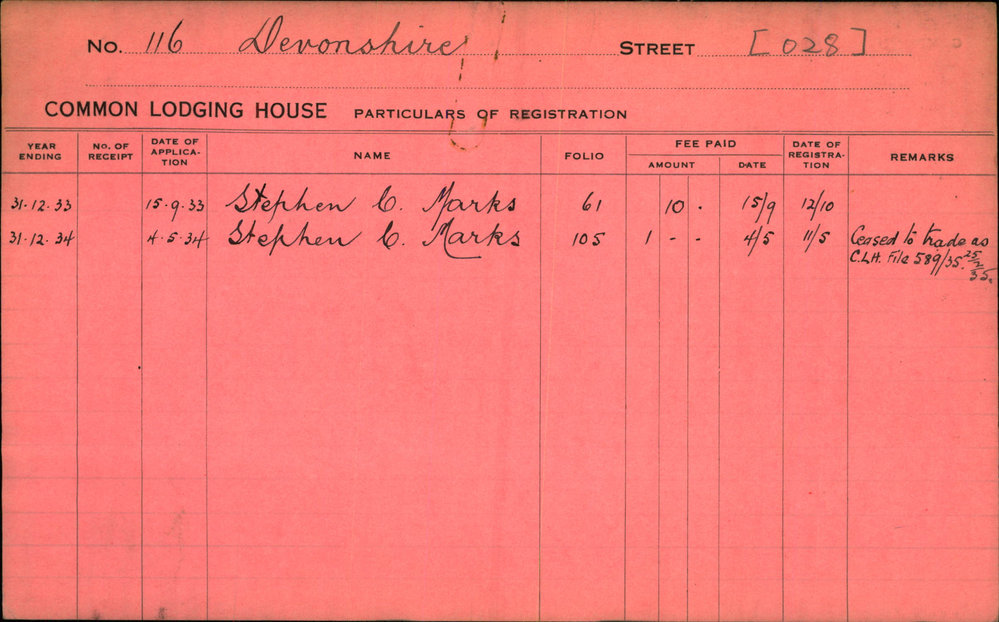 No. 116 Devonshire STREET [028]
COMMON LODGING HOUSE PARTICULARS OF REGISTRATION
YEAR ENDING No. OF RECEIPT DATE OF APPLICA-TION NAME FOLIO FEE PAID AMOUNT DATE DATE OF REGISTRA-TION REMARKS
31.12.33 15.9.33 Stephen C. Marks 61 10 . 15/9 12/10
31.12.34 4.5.34 Stephen C. Marks 105 1 - - 4/5 11/5 Ceased to trade as
C.L.H. File 589/35. 25/2/35.